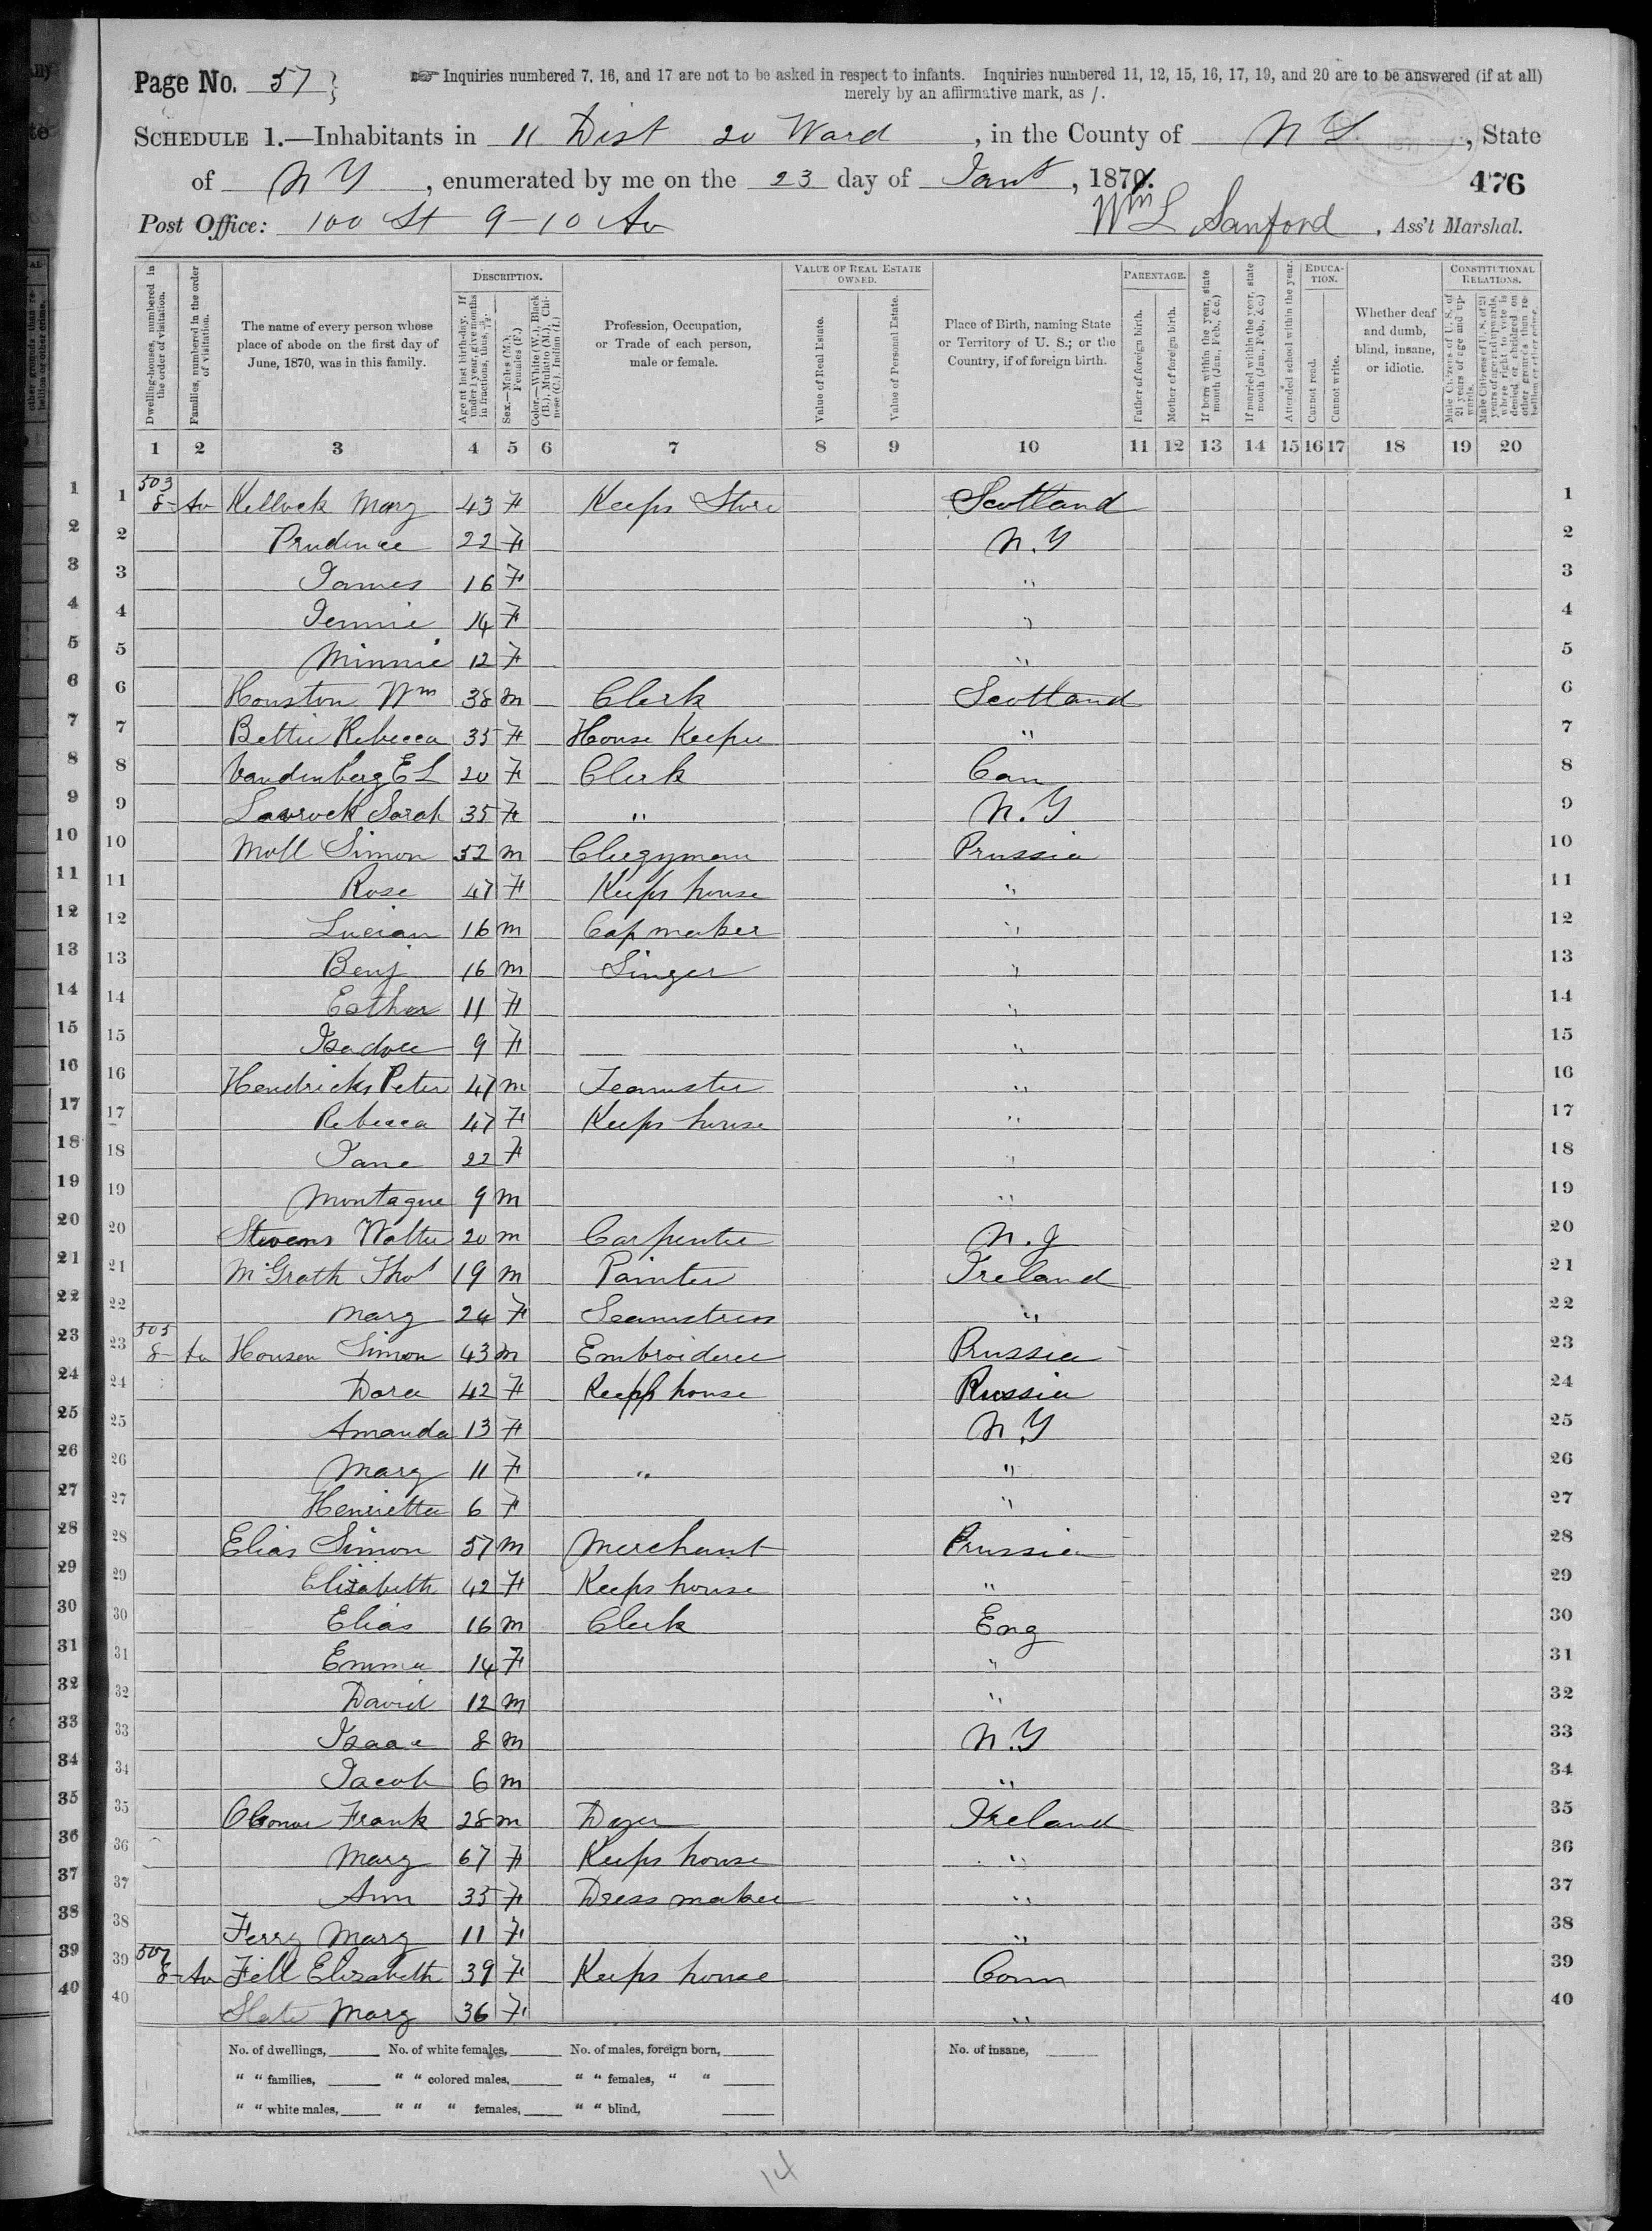 Page No. 57
Inquiries numbered 7, 16, and 17 are not to be asked in respect to infants. Inquiries numbered 11, 12, 15, 16, 17, 19, and 20 are to be answered (if at all)
merely by an affirmative mark, as /.
SCHEDULE 1.—Inhabitants in 11 Dist 20 Ward, in the County of N Y, State
of N Y, enumerated by me on the 23 day of Jany, 1871.
476
Post Office: 100 St 9-10 Av
Wm L Sanford, Ass't Marshal.
Dwelling-houses, numbered in the order of visitation.
Families, numbered in the order of visitation.
The name of every person whose place of abode on the first day of June, 1870, was in this family.
DESCRIPTION.
Age at last birth-day. If under 1 year, give months in fractions, thus, 3/12.
Sex.—Males (M.), Females (F.)
Color.—White (W.), Black (B.), Mulatto (M.), Chinese (C.), Indian (I.)
Profession, Occupation, or Trade of each person, male or female.
VALUE OF REAL ESTATE OWNED.
Value of Real Estate.
Value of Personal Estate.
Place of Birth, naming State or Territory of U. S.; or the Country, if of foreign birth.
PARENTAGE.
Father of foreign birth.
Mother of foreign birth.
If born within the year, state month (Jan., Feb., &c.)
If married within the year, state month (Jan., Feb., &c.)
EDUCATION.
Attended school within the year.
Cannot read.
Cannot write.
Whether deaf and dumb, blind, insane, or idiotic.
CONSTITUTIONAL RELATIONS.
Male Citizens of U. S. of 21 years of age and upwards.
Male Citizens of U. S. of 21 years of age and upwards, whose right to vote is denied or abridged on other grounds than rebellion or other crime.
1 2 3 4 5 6 7 8 9 10 11 12 13 14 15 16 17 18 19 20
1 503 8- Av Kellock Mary 43 F Keeps Store Scotland 1
2 Prudence 22 F N.Y 2
3 James 16 F " 3
4 Jennie 14 F " 4
5 Minnie 12 F " 5
6 Houston Wm 38 m Clerk Scotland 6
7 Bettie Rebecca 35 F House Keeper " 7
8 Vandenberg E L 20 F Clerk Can 8
9 Sarah 35 F " N.Y 9
10 Moll Simon 52 m Clergyman Prussia 10
11 Rose 47 F Keeps house " 11
12 Lucian 16 m Cap maker " 12
13 Benj 16 m Singer " 13
14 Esther 11 F " 14
15 Isadore 9 F " 15
16 Hendricks Peter 47 m Teamster " 16
17 Rebecca 47 F Keeps house " 17
18 Jane 22 F " 18
19 Montague 9 m " 19
20 Stevens Walter 20 m Carpenter N.J 20
21 McGrath Thos 19 m Painter Ireland 21
22 Mary 24 F Seamstress " 22
23 505 8- Av Housen Simon 43 m Embroiderer Prussia 23
24 Dora 42 F Keeps house Russia 24
25 Amanda 13 F N.Y 25
26 Mary 11 F " " 26
27 Henrietta 6 F " 27
28 Elias Simon 57 m Merchant Prussia 28
29 Elizabeth 42 F Keeps house " 29
30 Elias 16 m Clerk Eng 30
31 Emma 14 F " 31
32 David 12 m " 32
33 Isaac 8 m N.Y 33
34 Jacob 6 m " 34
35 OConor Frank 28 m Dyer Ireland 35
36 Mary 67 F Keeps house " 36
37 Ann 35 F Dress maker " 37
38 Ferry Mary 11 F " 38
39 507 8- Av Fell Elizabeth 39 F Keeps house Conn 39
40 Mary 36 F " 40
No. of dwellings, No. of white females, No. of males, foreign born, No. of insane,
" " families, " " colored males, " " females, " "
" " white males, " " " females, " " blind,
14